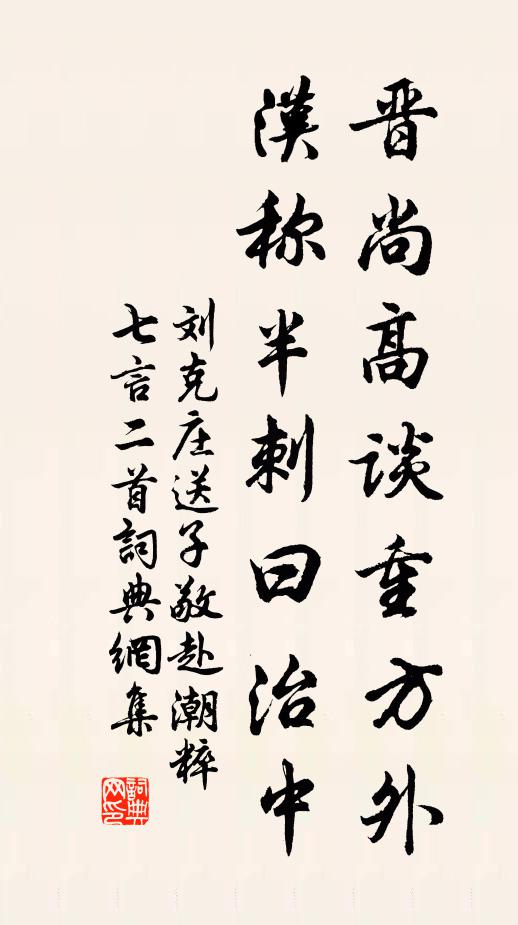 晋尚高谈重方外
漢称半刺曰治中
刘克庄送子敬赴潮粹
七言二首詞典網集
詞典网印